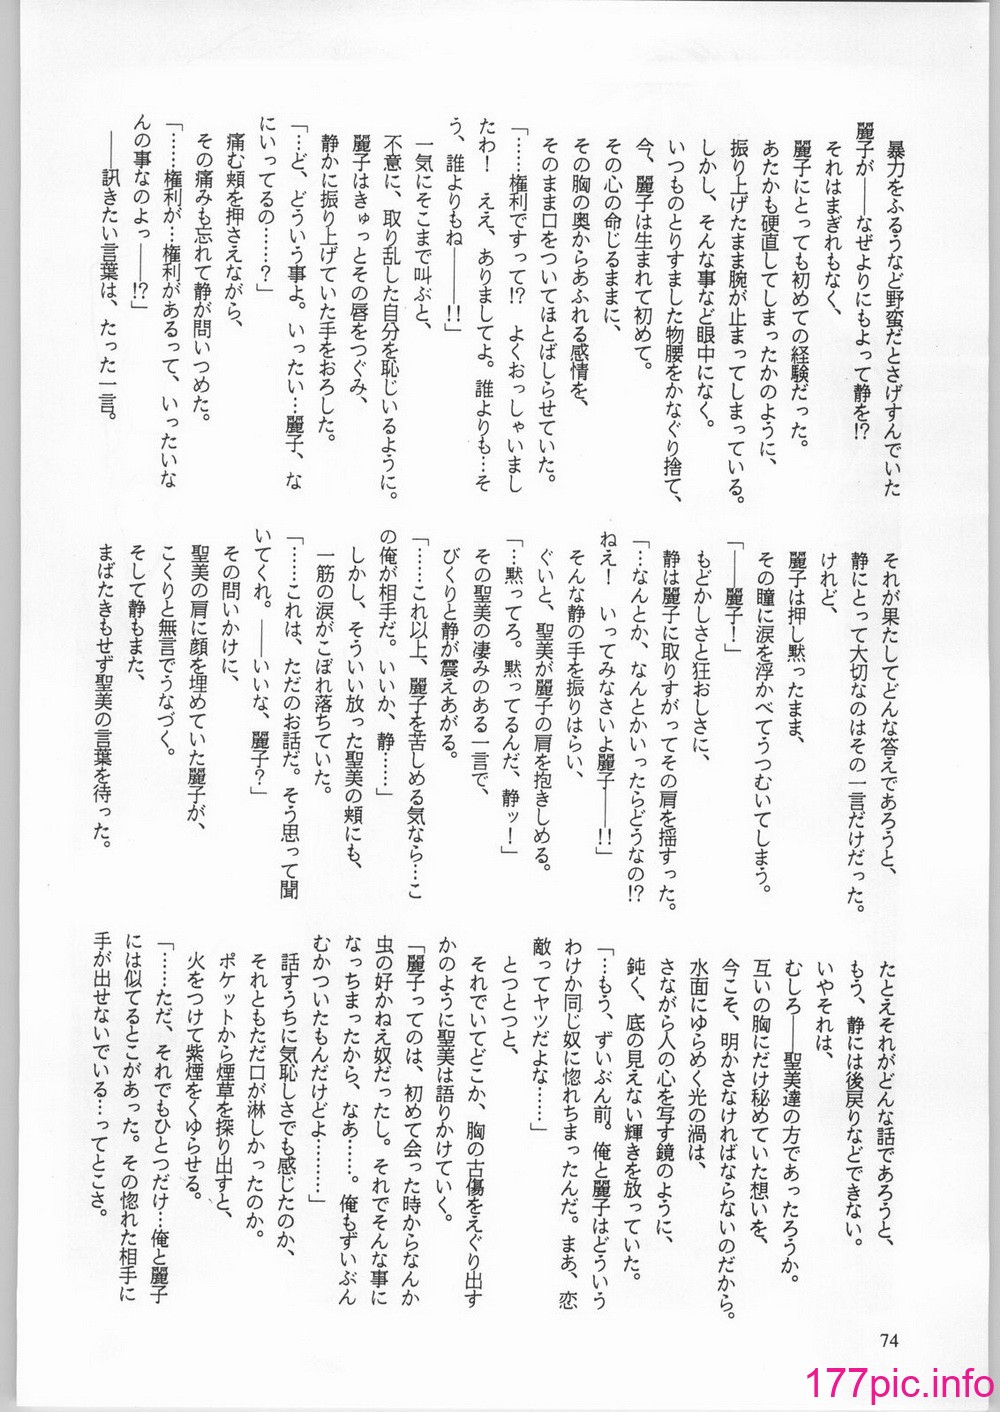 暴力をふるうなど野蛮だとさげすんでいた
麗子が――なぜよりにもよって静を!?
それはまぎれもなく、
麗子にとっても初めての経験だった。
あたかも硬直してしまったかのように、
振り上げたまま腕が止まってしまっている。
しかし、そんな事など眼中になく。
いつものとりすました物腰をかなぐり捨て、
今、麗子は生まれて初めて。
その心の命じるままに、
その胸の奥からあふれる感情を、
そのまま口をついてほとばしらせていた。
「……権利ですって!? よくおっしゃいまし
たわ! ええ、ありましてよ。誰よりも…そ
う、誰よりもね――!!」
一気にそこまで叫ぶと、
不意に、取り乱した自分を恥じいるように。
麗子はきゅっとその唇をつぐみ、
静かに振り上げていた手をおろした。
「…ど、どういう事よ。いったい…麗子、な
にいってるの……?」
痛む頬を押さえながら、
その痛みも忘れて静が問いつめた。
「……権利が…権利があるって、いったいな
んの事なのよっ――!?」
――訊きたい言葉は、たった一言。
それが果たしてどんな答えであろうと、
静にとって大切なのはその一言だけだった。
けれど、
麗子は押し黙ったまま、
その瞳に涙を浮かべてうつむいてしまう。
「――麗子!」
もどかしさと狂おしさに、
静は麗子に取りすがってその肩を揺すった。
「…なんとか、なんとかいったらどうなの!?
ねえ! いってみなさいよ麗子――!!」
そんな静の手を振りはらい、
ぐいと、聖美が麗子の肩を抱きしめる。
「…黙ってろ。黙ってるんだ、静ッ!」
その聖美の凄みのある一言で、
びくりと静が震えあがる。
「……これ以上、麗子を苦しめる気なら…こ
の俺が相手だ。いいか、静……」
しかし、そういい放った聖美の頬にも、
一筋の涙がこぼれ落ちていた。
「……これは、ただのお話だ。そう思って聞
いてくれ。――いいな、麗子?」
その問いかけに、
聖美の肩に顔を埋めていた麗子が、
こくりと無言でうなづく。
そして静もまた、
まばたきもせず聖美の言葉を待った。
たとえそれがどんな話であろうと、
もう、静には後戻りなどできない。
いやそれは、
むしろ――聖美達の方であったろうか。
互いの胸にだけ秘めていた想いを、
今こそ、明かさなければならないのだから。
水面にゆらめく光の渦は、
さながら人の心を写す鏡のように、
鈍く、底の見えない輝きを放っていた。
「…もう、ずいぶん前。俺と麗子はどういう
わけか同じ奴に惚れちまったんだ。まあ、恋
敵ってヤツだよな……」
とつとつと、
それでいてどこか、胸の古傷をえぐり出す
かのように聖美は語りかけていく。
「麗子ってのは、初めて会った時からなんか
虫の好かねえ奴だったし。それでそんな事に
なっちまったから、なあ……。俺もずいぶん
むかついたもんだけどよ………」
話すうちに気恥しさでも感じたのか、
それともただ口が淋しかったのか。
ポケットから煙草を探り出すと、
火をつけて紫煙をくゆらせる。
「……ただ、それでもひとつだけ…俺と麗子
には似てるとこがあった。その惚れた相手に
手が出せないでいる…ってとこさ。
74
177pic.info